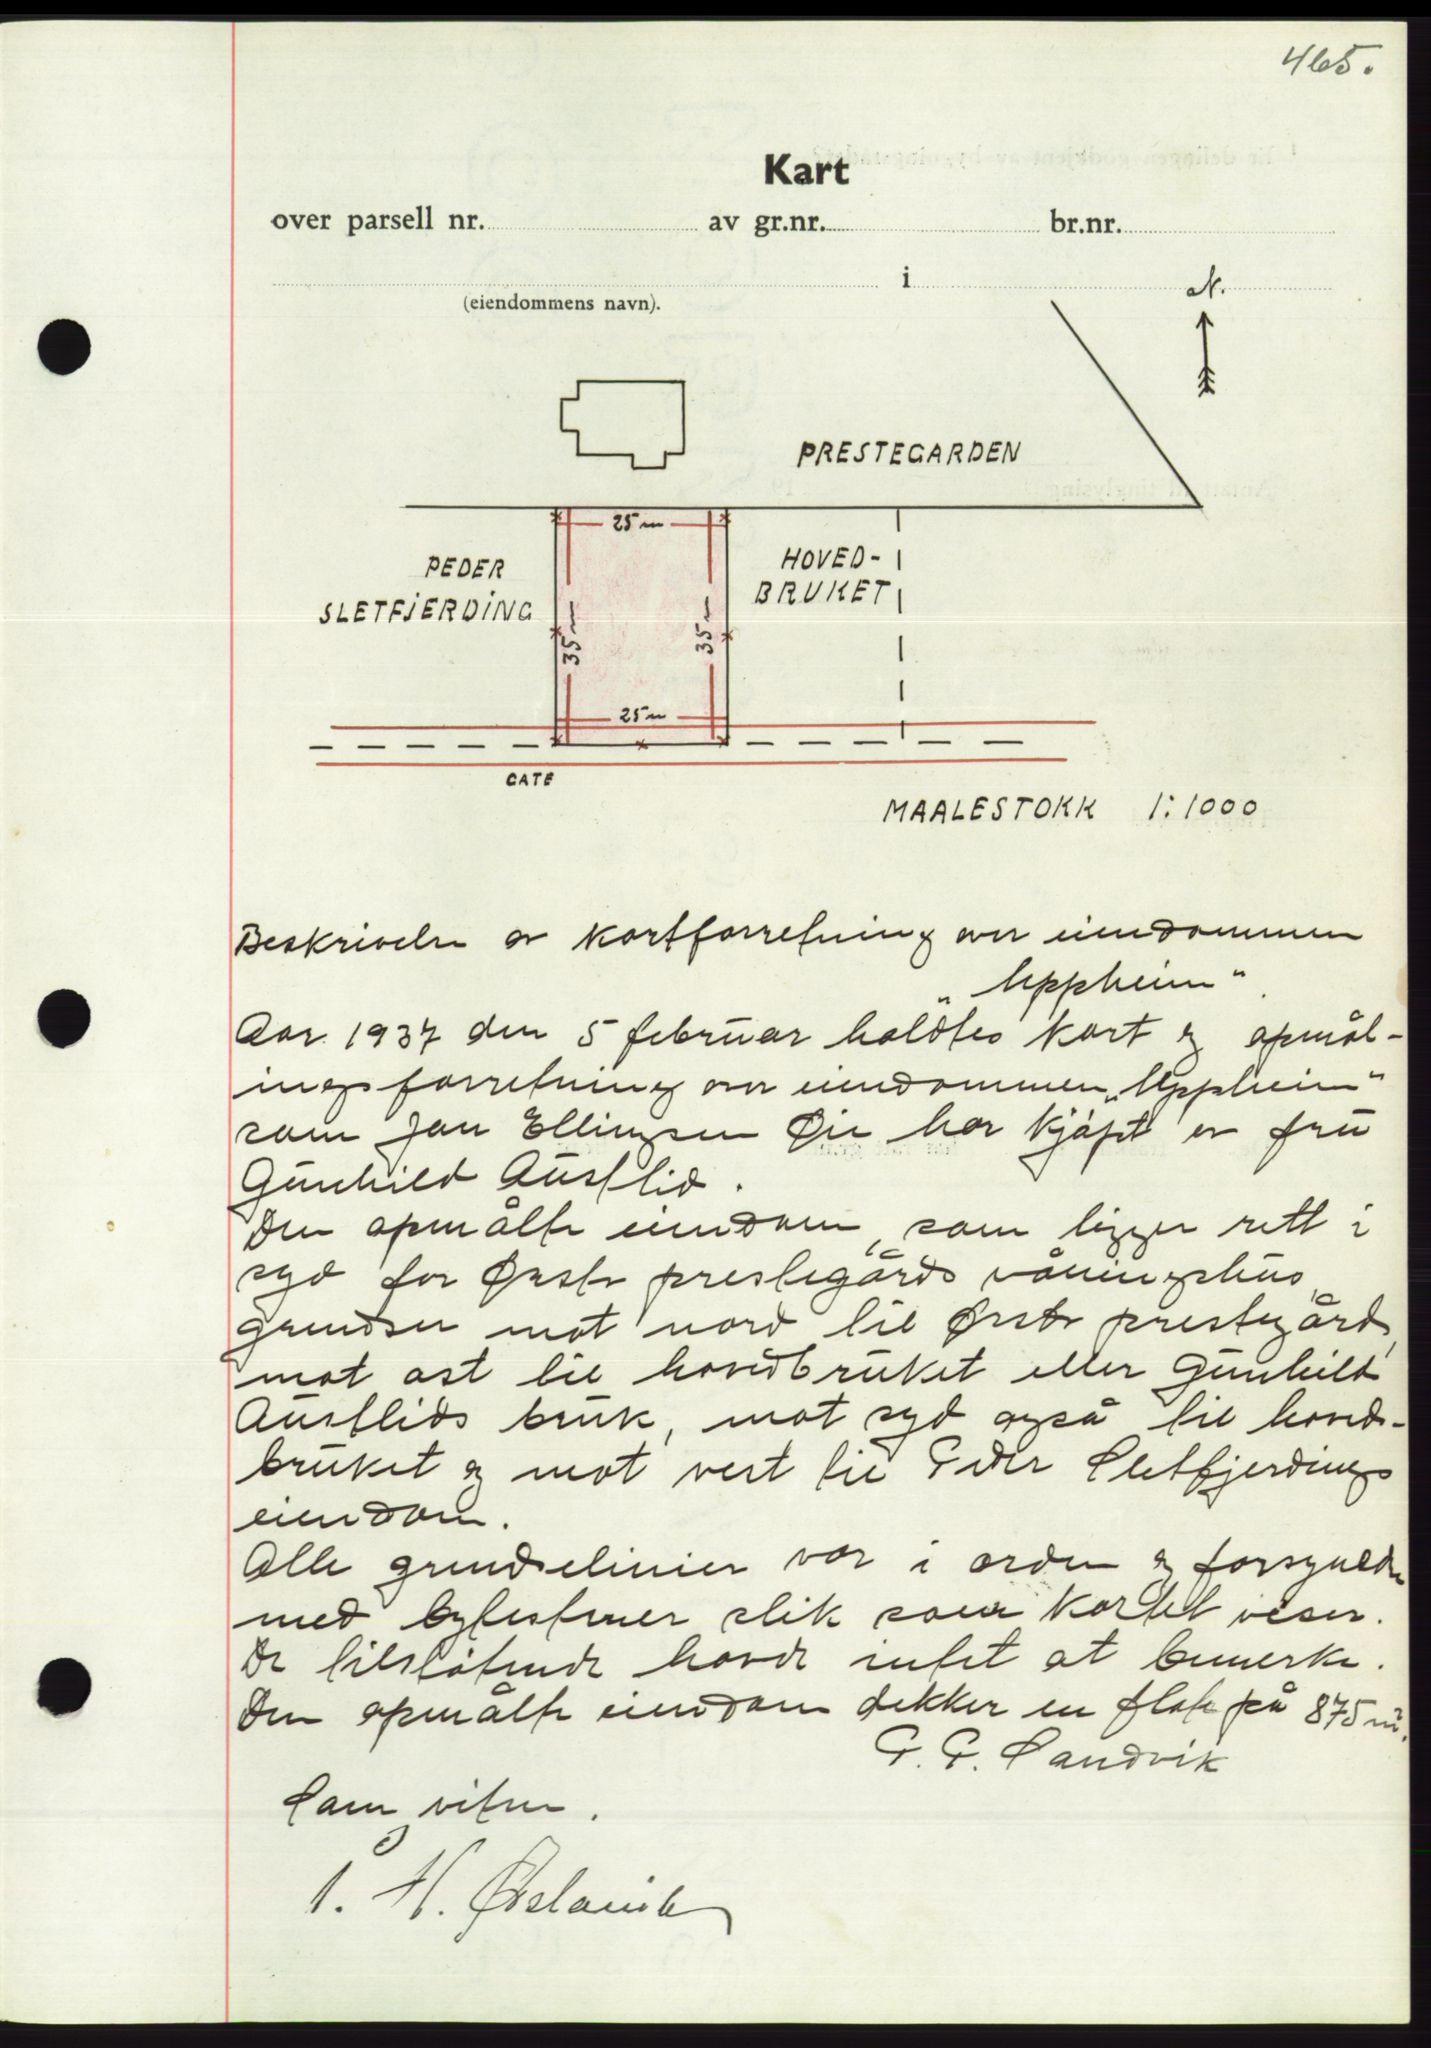 465.
Kart
over parsell nr. av gr.nr. br.nr.
i
(eiendommens navn).
N.
PRESTEGARDEN
25 m
PEDER
SLETFJERDING
HOVED-
BRUKET
35 m
35 m
25 m
GATE
MAALESTOKK 1:1000
Beskrivelse av kartforretning over eiendommen
„Uppheim“.
Aar 1937 den 5 februar holdtes kart og opmål-
ingsforretning over eiendommen „Uppheim“
som Jon Ellingsen Øie har kjøpt av fru
Gunhild Austlid.
Den opmålte eiendom, som ligger rett i
syd for Ørsta prestegårds våningshus,
grendser mot nord til Ørsta prestegård,
mot ost til hovedbruket eller Gunhild
Austlids bruk, mot syd også til hoved-
bruket og mot vest til Peder Sletfjerdings
eiendom.
Alle grendselinier var i orden og forsynede
med bytestener slik som kartet viser.
De tilstøtende havde intet at bemerke.
Den opmålte eiendom dekker en flate på 875 m².
P. P. Sandvik
Som vitne.
1. H.